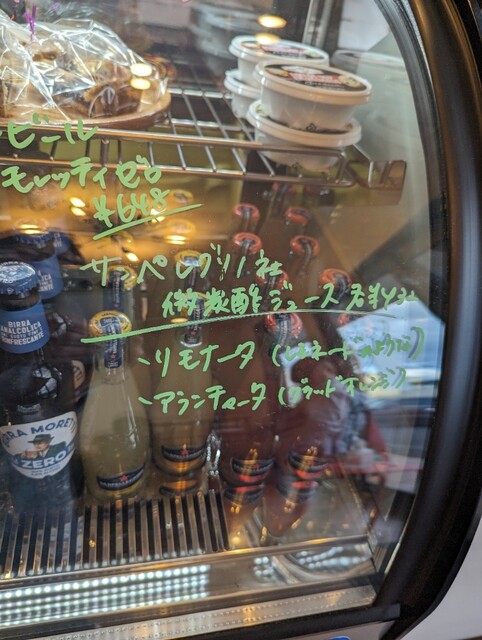 ビール
モレッティゼロ
¥648
サンペレグリノ社
微炭酸ジュース 各¥432
・リモナータ (レモネードのようです)
・アランチャータ (ブラッドオレンジ)
BIRRA
ANALCOLICA
ZERO